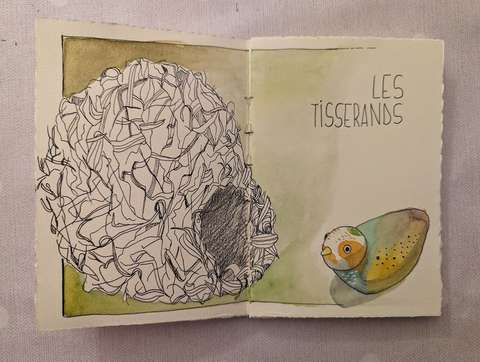 LES
TISSERANDS